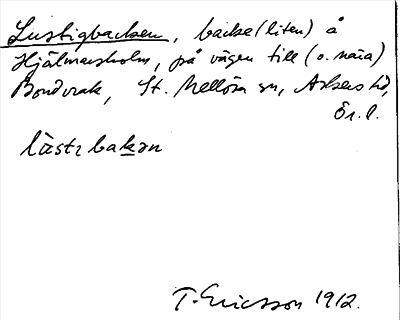 Lustigbacken, backe (liten) å
Hjälmarsholm, på vägen till (o. nära)
Bondvrak, St. Mellösa sn, Askers hd,
Ör. l.
lùstɩbakən
T. Ericsson 1912.